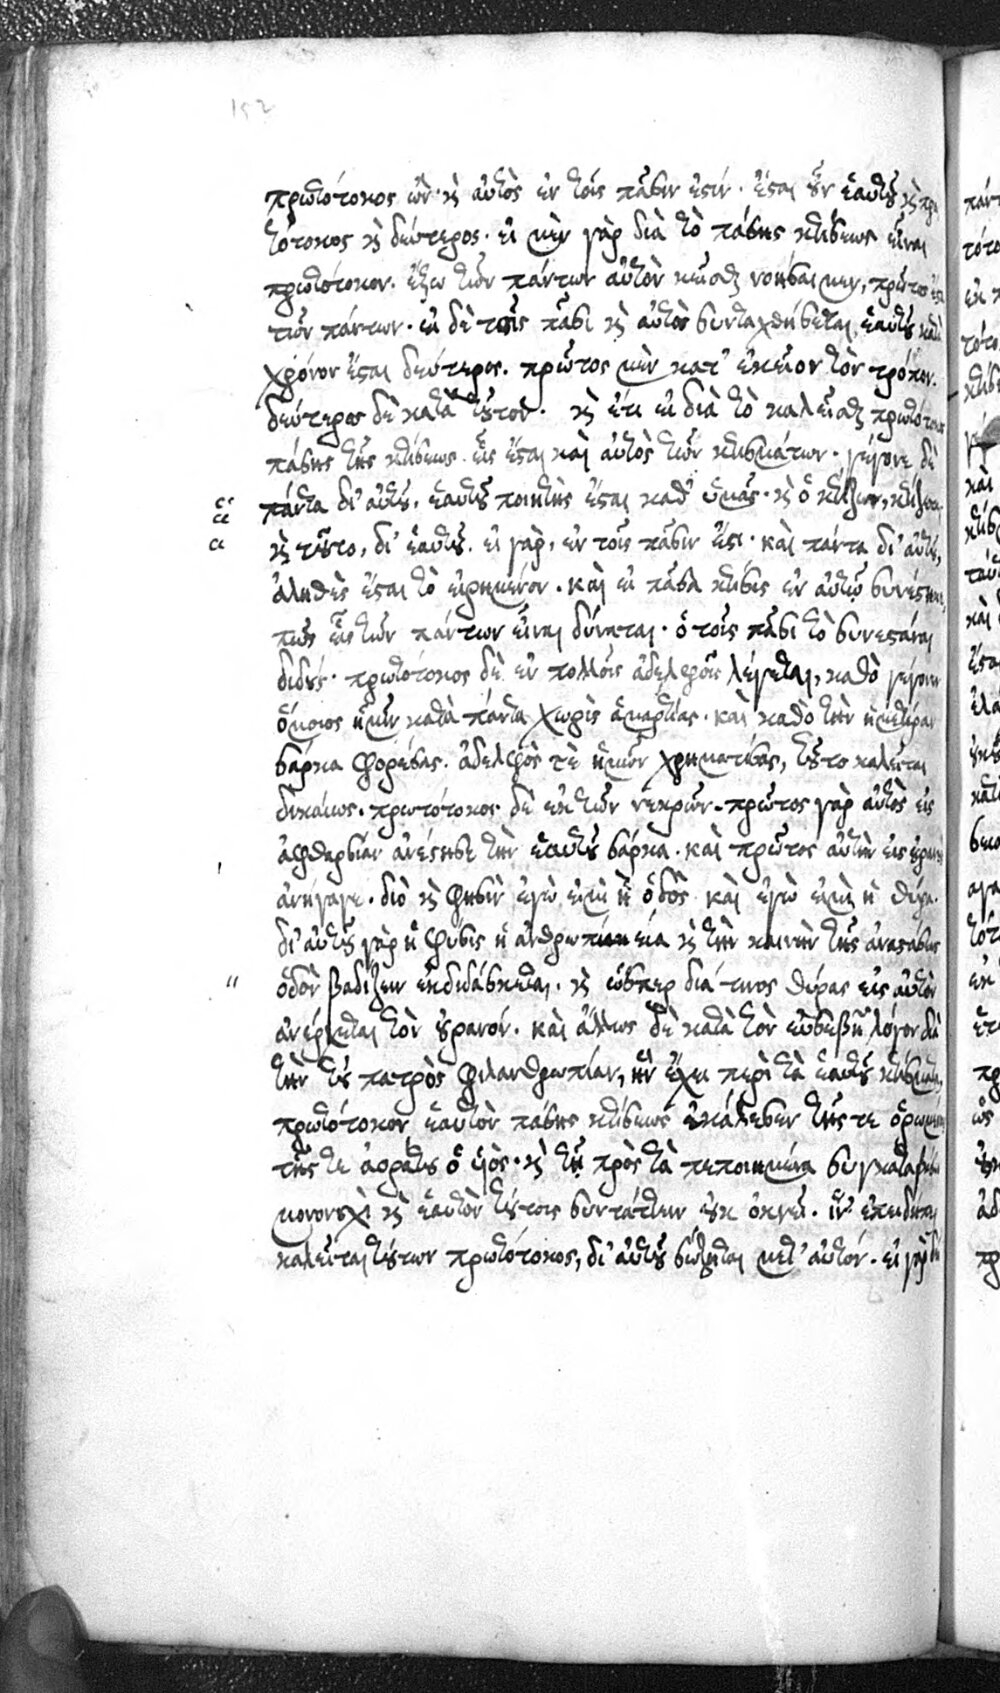 152
πρωτότοκος ὢν κ̀ αὐτὸς ἐν τοῖς πᾶσιν ἐστίν. ἔσται οὖν ἑαυτοῦ κ̀ πρω
τότοκος κ̀ δεύτερος. εἰ μὲν γὰρ διὰ τὸ πάσης κτίσεως εἶναι
πρωτότοκον. ἔξω τῶν πάντων αὐτὸν κεῖσθαι νοήσαιμεν, πρῶτος
τῶν πάντων. εἰ δὲ τοῖς πᾶσι κ̀ αὐτὸς συνταχθήσεται, ἑαυτοῦ κατὰ
χρόνον ἔσται δεύτερος. πρῶτος μὲν κατ' ἐκεῖνον τὸν τρόπον.
δεύτερος δὲ κατὰ τοῦτον. κ̀ ἔτι εἰ διὰ τὸ καλεῖσθαι πρωτότοκος
πάσης τῆς κτίσεως. εἷς ἔσται καὶ αὐτὸς τῶν κτισμάτων. γέγονε δὲ
πάντα δι' αὐτοῦ. ἑαυτοῦ ποιητὴς ἔσται καθ' ὑμᾶς. κ̀ ὁ κτίζων, κτίζεται
κ̀ τοῦτο, δι' ἑαυτοῦ. εἰ γὰρ, ἐν τοῖς πᾶσιν ἔστι. καὶ πάντα δι' αὐτοῦ,
ἀληθὲς ἔσται τὸ εἰρημένον. καὶ εἰ πᾶσα κτίσις ἐν αὐτῷ συνέστηκε,
πῶς εἷς τῶν πάντων εἶναι δύναται. ὁ τοῖς πᾶσι τὸ συνεστάναι
διδούς. πρωτότοκος δὲ ἐν πολλοῖς ἀδελφοῖς λέγεται, καθὸ γέγονεν
ὅμοιος ἡμῖν κατὰ πάντα χωρὶς ἁμαρτίας. καὶ καθὸ τὴν ἡμετέραν
σάρκα φορέσας. ἀδελφός τε ἡμῶν χρηματίσας, τοῦτο καλεῖται
δικαίως. πρωτότοκος δὲ ἐκ τῶν νεκρῶν. πρῶτος γὰρ αὐτὸς εἰς
ἀφθαρσίαν ἀνέστησε τὴν ἑαυτοῦ σάρκα. καὶ πρῶτος αὐτὴν εἰς οὐρανοὺς
ἀνήγαγε. διὸ κ̀ φησὶν ἐγώ εἰμι ἡ ὁδὸς καὶ ἐγώ εἰμι ἡ θύρα.
δι' αὐτοῦ γὰρ ἡ φύσις ἡ ἀνθρωπίνη κ̀ τὴν καινὴν τῆς ἀναστάσεως
ὁδὸν βαδίζειν ἐκδιδάσκεται. κ̀ ὥσπερ διά τινος θύρας εἰς αὐτὸν
ἀνέρχεται τὸν οὐρανόν. καὶ ἄλλως δὲ κατὰ τὸν εὐσεβῆ λόγον διὰ
τὴν τοῦ πατρὸς φιλανθρωπίαν, ἣν ἔχει περὶ τὰ ἑαυτοῦ κτίσματα,
πρωτότοκον ἑαυτὸν πάσης κτίσεως ἐκάλεσεν τῆς τε ὁρωμένης
τῆς τε ἀοράτου ὁ υἱὸς. κ̀ τῇ πρὸς τὰ πεποιημένα συγκαταβάσει
μονονουχὶ κ̀ ἑαυτὸν τούτοις συντάττειν οὐκ ὀκνεῖ. ἵν' ἐπειδήπερ
καλεῖται τούτων πρωτότοκος, δι' αὐτοῦ σώζηται μετ' αὐτόν. εἰ γὰρ δεῖ